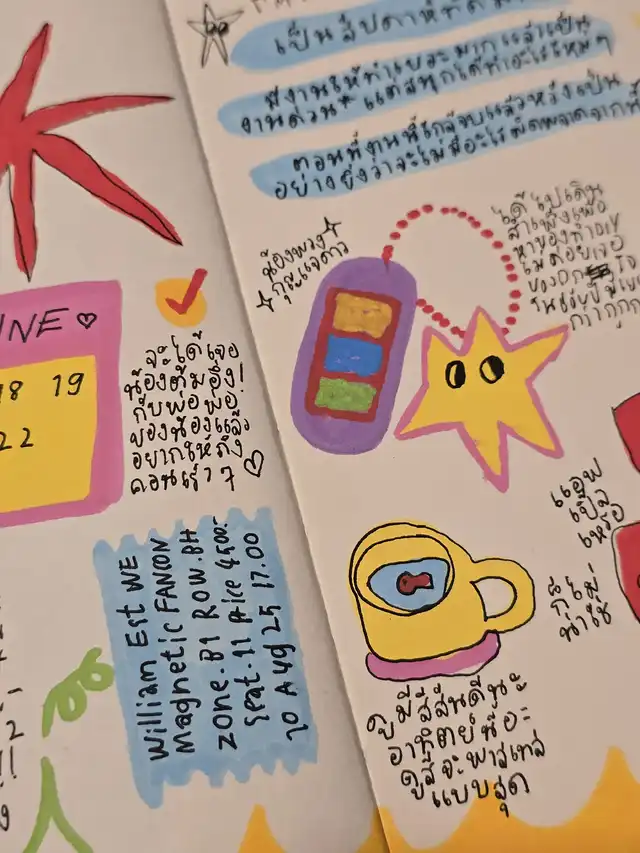 INE ♡
18 19
22
จะได้เจอ
น้องต้มอึ๋ง!
กับพ่อพ่อ
ของน้องแล้ว
อยากให้ถึง
คอนเร็วๆ ♡
William Est WE
Magnetic FANCON
ZONE.B1 ROW.BH
Seat.11 Price 4500.-
20 Aug 25 17.00
เป็นสัปดาห์ที่
มีงานให้ทำเยอะมาก แล้วเป็น
งานด่วน* แต่สนุกได้ทำอะไรใหม่ๆ
ตอนนี้งานนี้ใกล้จบแล้วหวังเป็น
อย่างยิ่งว่าจะไม่มีอะไรผิดพลาดจากนี้
น้องพวง
กุญแจดาว
ได้ไปเดิน
สำเพ็งเพื่อ
แอพ
เปิ้ล
เหรอ
ก็ไม่
น่าใช่
ดูมีสีสันดีนะ
อาทิตย์นี้อะ
ดูสีจะพาสเทล
แบบสุด